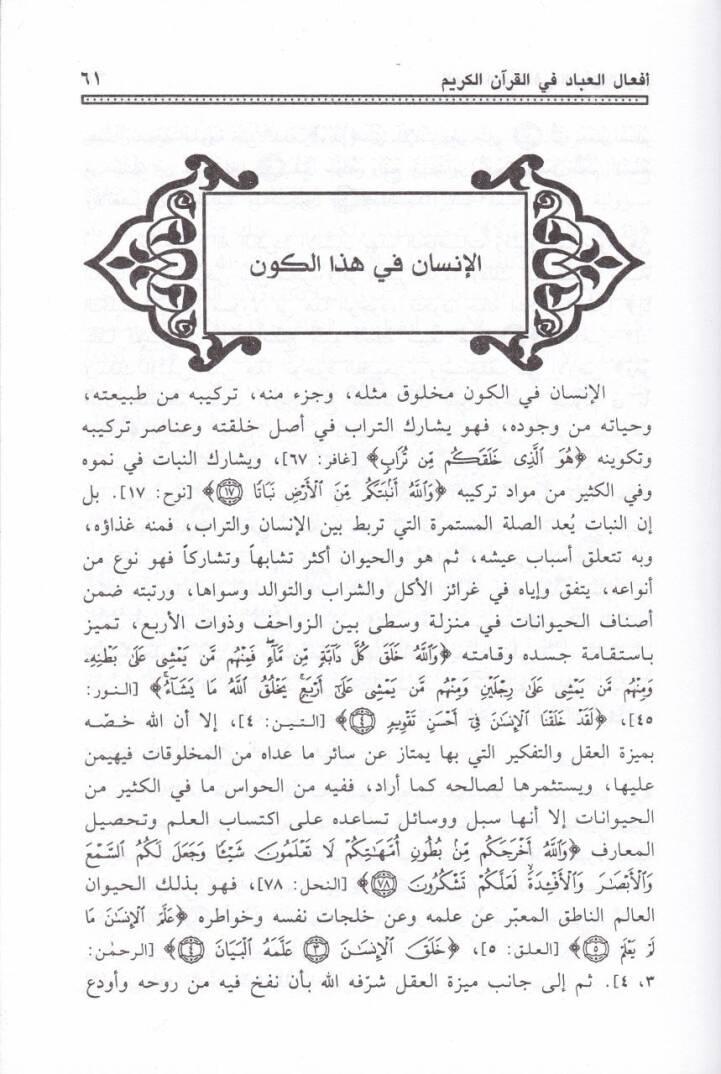 أفعال العباد في القرآن الكريم ٦١
الإنسان في هذا الكون
الإنسان في الكون مخلوق مثله، وجزء منه، تركيبه من طبيعته،
وحياته من وجوده، فهو يشارك التراب في أصل خلقته وعناصر تركيبه
وتكوينه ﴿هُوَ ٱلَّذِى خَلَقَكُم مِّن تُرَابٍ﴾ [غافر: ٦٧]، ويشارك النبات في نموه
وفي الكثير من مواد تركيبه ﴿وَٱللَّهُ أَنۢبَتَكُم مِّنَ ٱلْأَرْضِ نَبَاتًا ۝١٧﴾ [نوح: ١٧]. بل
إن النبات يُعد الصلة المستمرة التي تربط بين الإنسان والتراب، فمنه غذاؤه،
وبه تتعلق أسباب عيشه، ثم هو والحيوان أكثر تشابهاً وتشاركاً فهو نوع من
أنواعه، يتفق وإياه في غرائز الأكل والشراب والتوالد وسواها، ورتبته ضمن
أصناف الحيوانات في منزلة وسطى بين الزواحف وذوات الأربع، تميز
باستقامة جسده وقامته ﴿وَٱللَّهُ خَلَقَ كُلَّ دَآبَّةٍ مِّن مَّآءٍ ۖ فَمِنْهُم مَّن يَمْشِى عَلَىٰ بَطْنِهِۦ
وَمِنْهُم مَّن يَمْشِى عَلَىٰ رِجْلَيْنِ وَمِنْهُم مَّن يَمْشِى عَلَىٰٓ أَرْبَعٍ ۚ يَخْلُقُ ٱللَّهُ مَا يَشَآءُ ۚ﴾ [النور:
٤٥]، ﴿لَقَدْ خَلَقْنَا ٱلْإِنسَٰنَ فِىٓ أَحْسَنِ تَقْوِيمٍ ۝٤﴾ [التين: ٤]، إلا أن الله خصّه
بميزة العقل والتفكير التي بها يمتاز عن سائر ما عداه من المخلوقات فيهيمن
عليها، ويستثمرها لصالحه كما أراد، ففيه من الحواس ما في الكثير من
الحيوانات إلا أنها سبل ووسائل تساعده على اكتساب العلم وتحصيل
المعارف ﴿وَٱللَّهُ أَخْرَجَكُم مِّنۢ بُطُونِ أُمَّهَٰتِكُمْ لَا تَعْلَمُونَ شَيْـًٔا وَجَعَلَ لَكُمُ ٱلسَّمْعَ
وَٱلْأَبْصَٰرَ وَٱلْأَفْـِٔدَةَ ۙ لَعَلَّكُمْ تَشْكُرُونَ ۝٧٨﴾ [النحل: ٧٨]، فهو بذلك الحيوان
العالم الناطق المعبّر عن علمه وعن خلجات نفسه وخواطره ﴿عَلَّمَ ٱلْإِنسَٰنَ مَا
لَمْ يَعْلَمْ ۝٥﴾ [العلق: ٥]، ﴿خَلَقَ ٱلْإِنسَٰنَ ۝٣ عَلَّمَهُ ٱلْبَيَانَ ۝٤﴾ [الرحمٰن:
٣، ٤]. ثم إلى جانب ميزة العقل شرّفه الله بأن نفخ فيه من روحه وأودع